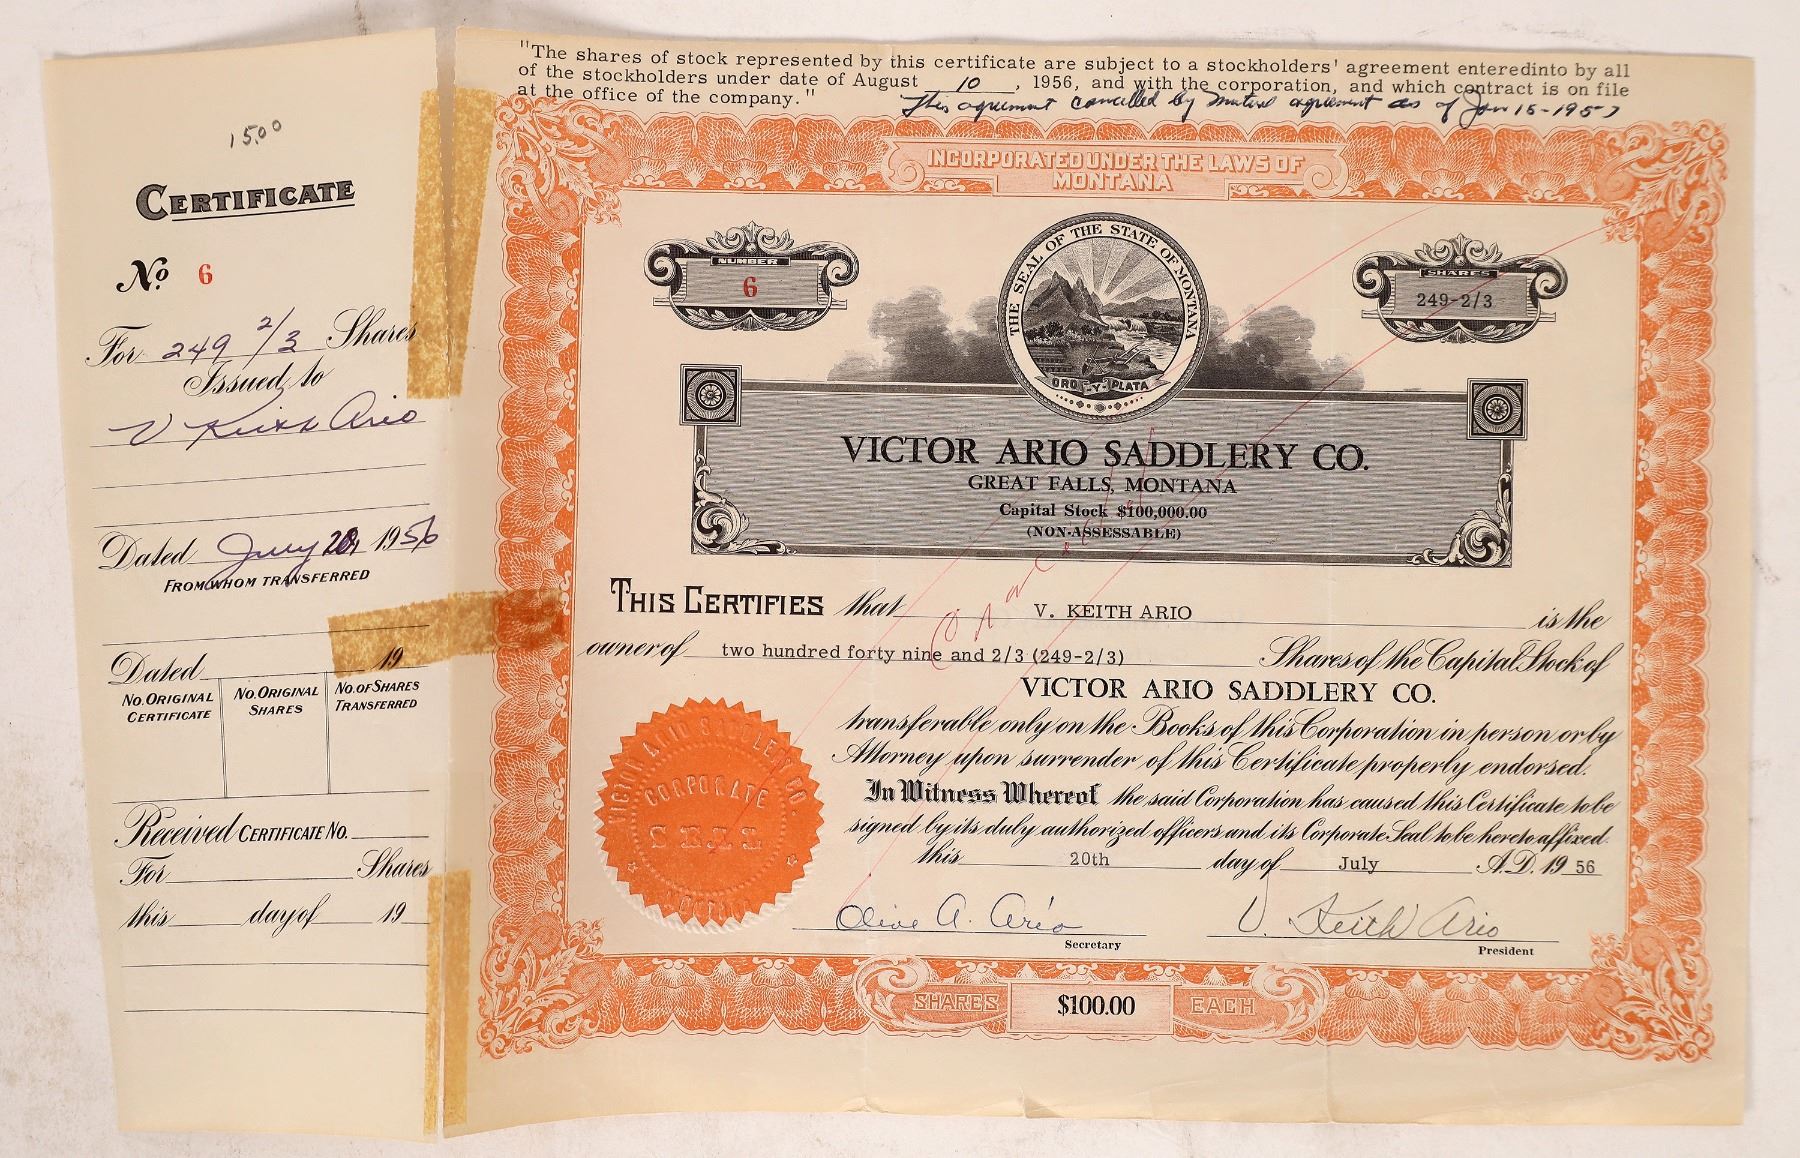 "The shares of stock represented by this certificate are subject to a stockholders' agreement enteredinto by all
of the stockholders under date of August 10, 1956, and with the corporation, and which contract is on file
at the office of the company."
This agreement cancelled by mutual agreement as of Jan 15-1957
1500
CERTIFICATE
No. 6
For 249 2/3 Shares
Issued to
V Keith Ario
Dated July 20, 1956
FROM WHOM TRANSFERRED
Dated 19
No. ORIGINAL CERTIFICATE
No. ORIGINAL SHARES
No. OF SHARES TRANSFERRED
Received CERTIFICATE No.
For Shares
this day of 19
INCORPORATED UNDER THE LAWS OF
MONTANA
NUMBER
6
THE SEAL OF THE STATE OF MONTANA
ORO-Y-PLATA
SHARES
249-2/3
VICTOR ARIO SADDLERY CO.
GREAT FALLS, MONTANA
Capital Stock $100,000.00
(NON-ASSESSABLE)
Cancelled
THIS CERTIFIES that V. KEITH ARIO is the
owner of two hundred forty nine and 2/3 (249-2/3) Shares of the Capital Stock of
VICTOR ARIO SADDLERY CO.
transferable only on the Books of this Corporation in person or by
Attorney upon surrender of this Certificate properly endorsed.
In Witness Whereof the said Corporation has caused this Certificate to be
signed by its duly authorized officers and its Corporate Seal to be hereto affixed
this 20th day of July A.D. 19 56
VICTOR ARIO SADDLERY CO.
CORPORATE
SEAL
MONTANA
Olive A. Ario
Secretary
V. Keith Ario
President
SHARES $100.00 EACH